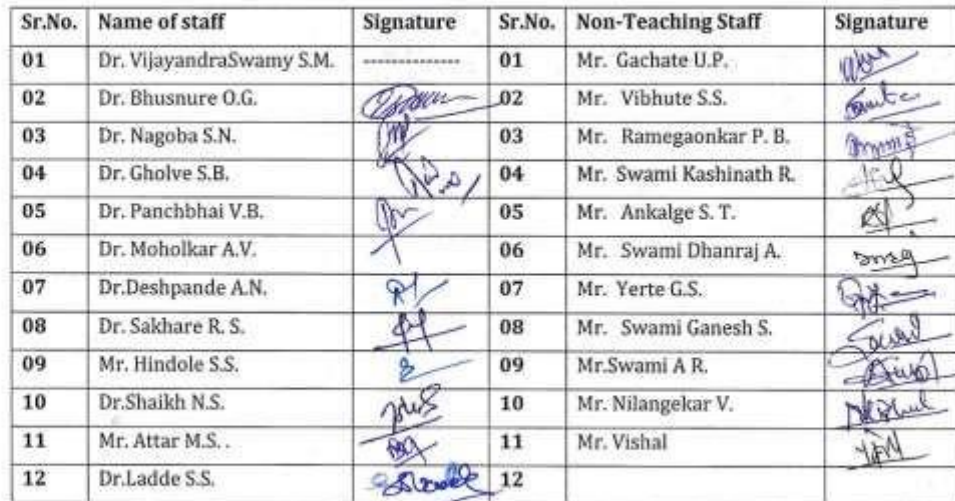 Sr.No. Name of staff Signature Sr.No. Non-Teaching Staff Signature
01 Dr. VijayandraSwamy S.M. -------------- 01 Mr. Gachate U.P.
02 Dr. Bhusnure O.G. 02 Mr. Vibhute S.S.
03 Dr. Nagoba S.N. 03 Mr. Ramegaonkar P. B.
04 Dr. Gholve S.B. 04 Mr. Swami Kashinath R.
05 Dr. Panchbhai V.B. 05 Mr. Ankalge S. T.
06 Dr. Moholkar A.V. 06 Mr. Swami Dhanraj A.
07 Dr.Deshpande A.N. 07 Mr. Yerte G.S.
08 Dr. Sakhare R. S. 08 Mr. Swami Ganesh S.
09 Mr. Hindole S.S. 09 Mr.Swami A R.
10 Dr.Shaikh N.S. 10 Mr. Nilangekar V.
11 Mr. Attar M.S. . 11 Mr. Vishal
12 Dr.Ladde S.S. 12